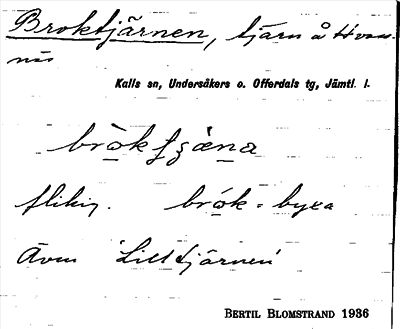 Broktjärnen, tjärn å Hvon-
när
Kalls sn, Undersåkers o. Offerdals tg, Jämtl. l.
bròktʃæ̀na
flikig. brók = byxa
Även 'Lilltjärnen'
BERTIL BLOMSTRAND 1936